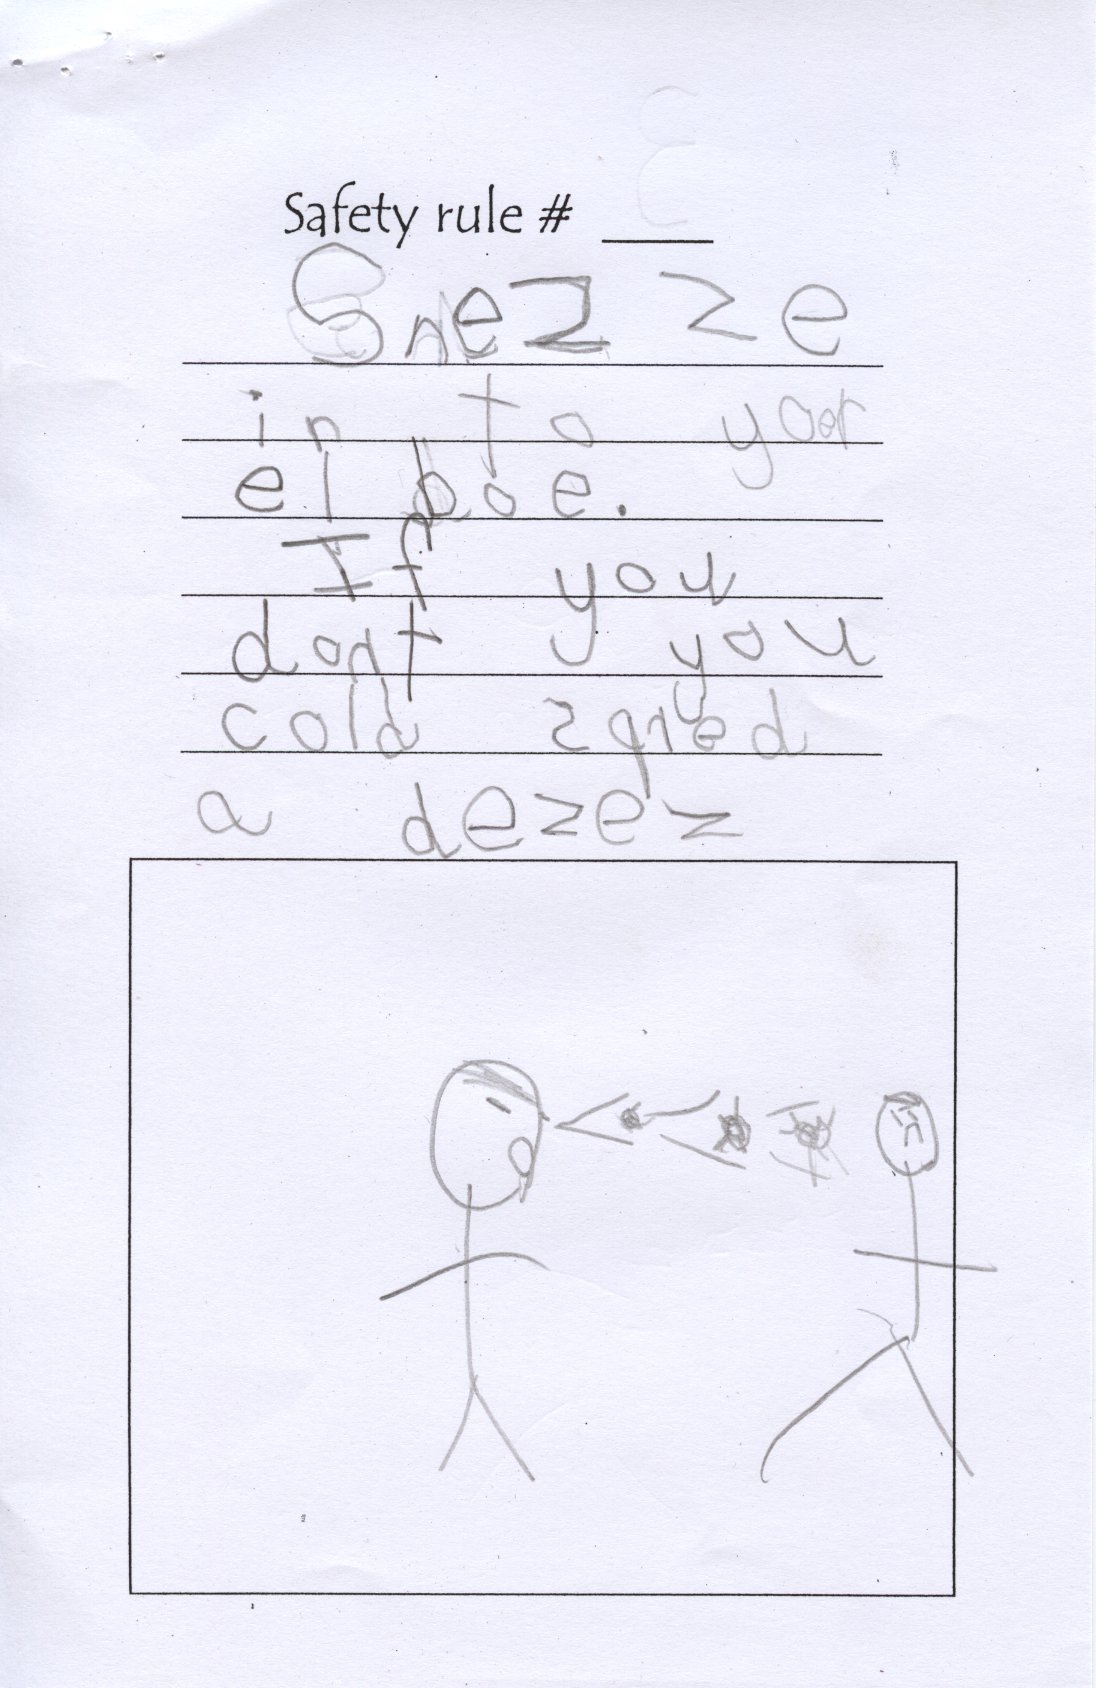 Safety rule # Ɛ
Snezze
in to your
elboe.
If you
dont you
cold zpred
a dezez